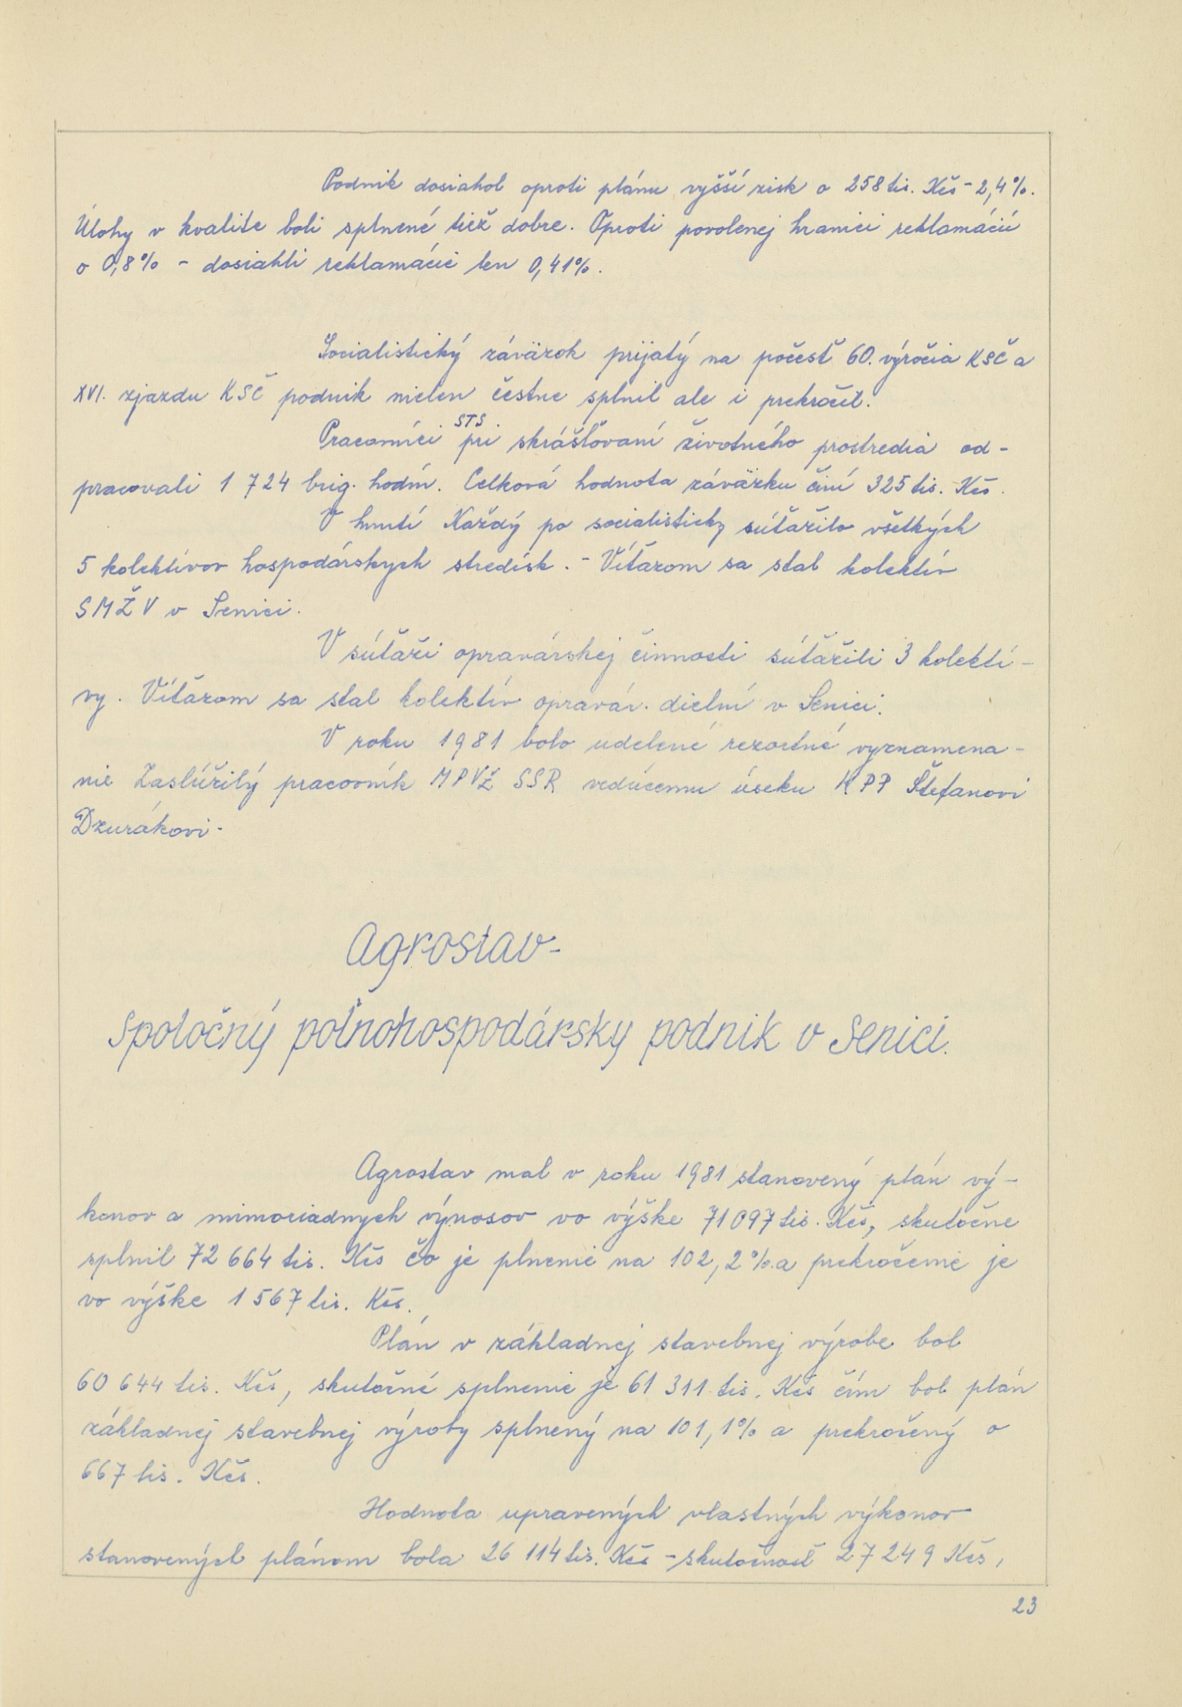 Podnik dosiahol oproti plánu vyšší zisk o 258 tis. Kčs - 2,4%.
Úlohy v kvalite boli splnené tiež dobre. Oproti povolenej hranici reklamácií
o 0,8% - dosiahli reklamácie len 0,41%.
Socialistický záväzok prijatý na počesť 60. výročia KSČ a
XVI. zjazdu KSČ podnik nielen čestne splnil ale i prekročil.
Pracovníci STS pri skrášľovaní životného prostredia od-
pracovali 1 724 brig. hodín. Celková hodnota záväzku činí 325 tis. Kčs.
V hnutí Každý po socialisticky súťažilo všetkých
5 kolektívov hospodárskych stredísk. - Víťazom sa stal kolektív
SMŽV v Senici.
V súťaži opravárskej činnosti súťažili 3 kolektí-
vy. Víťazom sa stal kolektív opravár. dielní v Senici.
V roku 1981 bolo udelené rezortné vyznamena-
nie Zaslúžilý pracovník MPVŽ SSR vedúcemu úseku KPP Štefanovi
Dzurákovi.
Agrostav-
Spoločný poľnohospodársky podnik v Senici.
Agrostav mal v roku 1981 stanovený plán vý-
konov a mimoriadnych výnosov vo výške 71 097 tis. Kčs, skutočne
splnil 72 664 tis. Kčs čo je plnenie na 102,2% a prekročenie je
vo výške 1 567 tis. Kčs.
Plán v základnej stavebnej výrobe bol
60 644 tis. Kčs, skutočné splnenie je 61 311 tis. Kčs čím bol plán
základnej stavebnej výroby splnený na 101,1% a prekročený o
667 tis. Kčs.
Hodnota upravených vlastných výkonov
stanovených plánom bola 26 114 tis. Kčs - skutočnosť 27 249 Kčs,
23